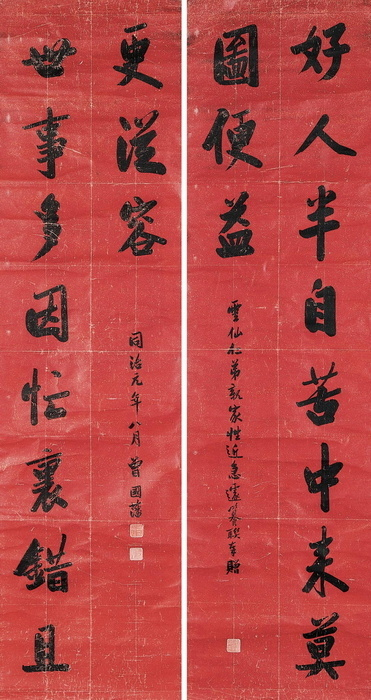 好人半自苦中來莫
圖便益
雲仙仁弟親家性近急遽纂聯奉贈
世事多因忙裏錯且
更從容
同治元年八月曾國藩